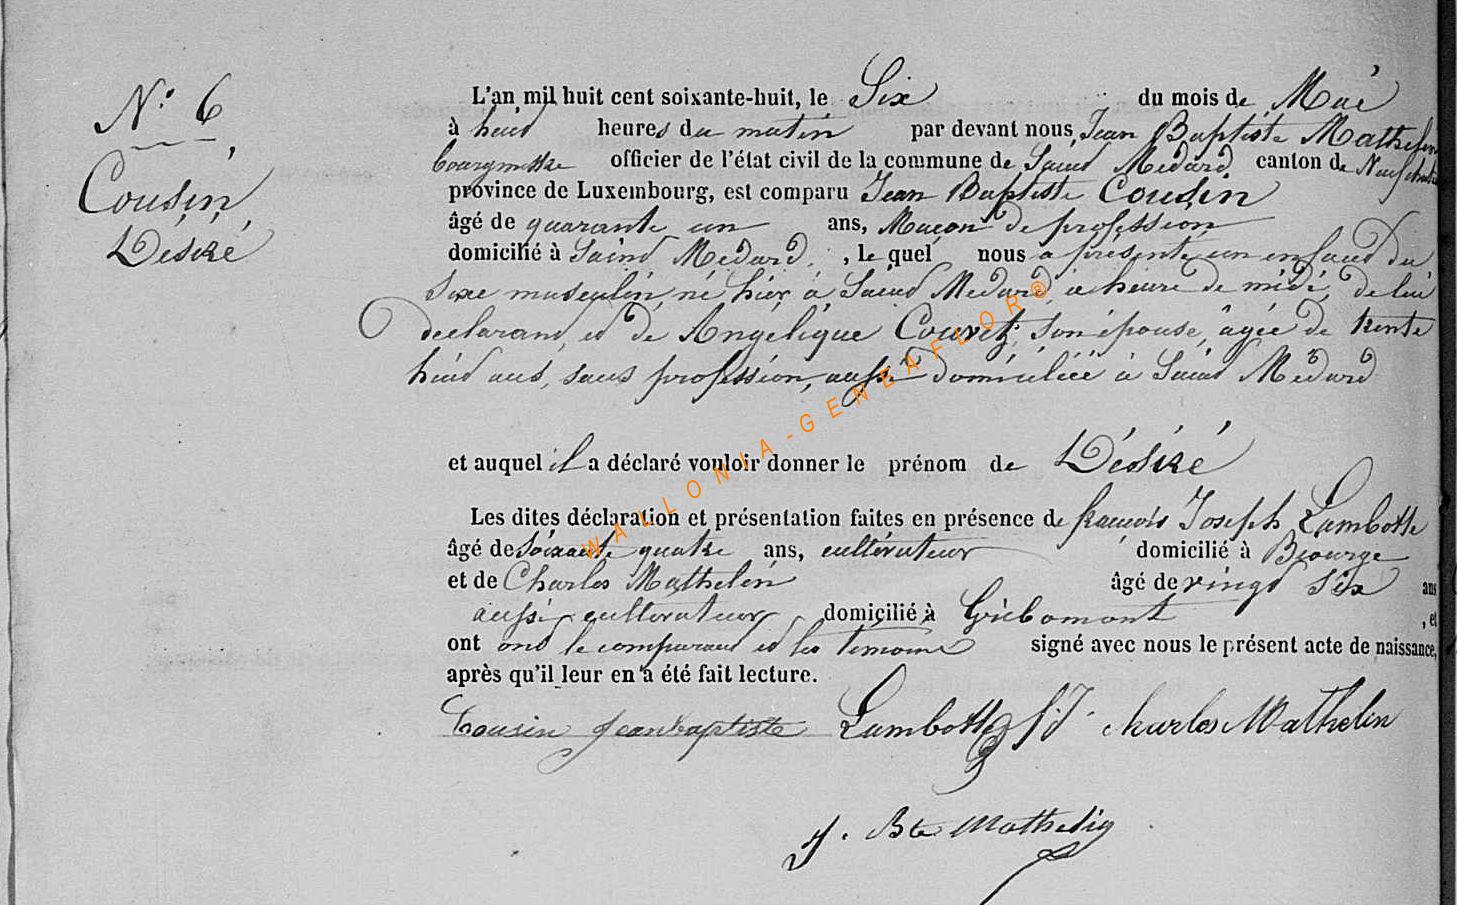 N.° 6
Cousin,
Désiré
L'an mil huit cent soixante-huit, le Six du mois de Mai
à huit heures du matin par devant nous Jean Baptiste Mathelin
bourgmestre officier de l'état civil de la commune de Saint Médard canton de Neufchateau
province de Luxembourg, est comparu Jean Baptiste Cousin
âgé de quarante un ans, Maçon de profession
domicilié à Saint Médard, le quel nous a présenté un enfant du
sexe masculin, né hier à Saint Médard, à heure de midi, de lui
déclarant, et de Angélique Couvet, son épouse, âgée de trente
huit ans, sans profession, aussi domiciliée à Saint Médard
et auquel il a déclaré vouloir donner le prénom de Désiré
Les dites déclaration et présentation faites en présence de françois Joseph Lambotte
âgé de soixante quatre ans, cultivateur domicilié à Biourge
et de Charles Mathelin âgé de vingt six ans
aussi cultivateur domicilié à Gribomont, et
ont ont le comparant et les témoins signé avec nous le présent acte de naissance,
après qu'il leur en a été fait lecture.
Cousin Jean baptiste Lambotte f. J. charles Mathelin
J. Bte Mathelin
WALLONIA-GENEAFLOR®